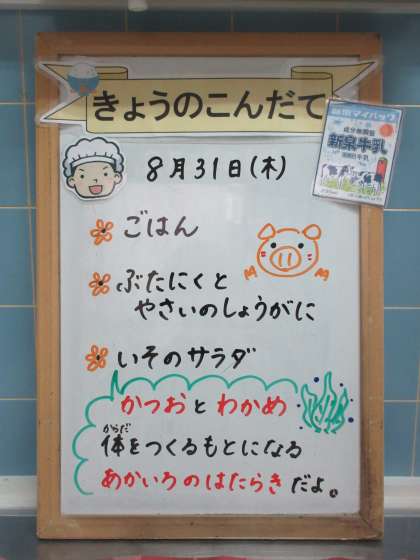 きょうのこんだて
8月31日(木)
ごはん
ぶたにくと
やさいのしょうがに
いそのサラダ
かつおとわかめ
からだ
体をつくるもとになる
あかいろのはたらきだよ。
マイパック
成分無調整
牛乳